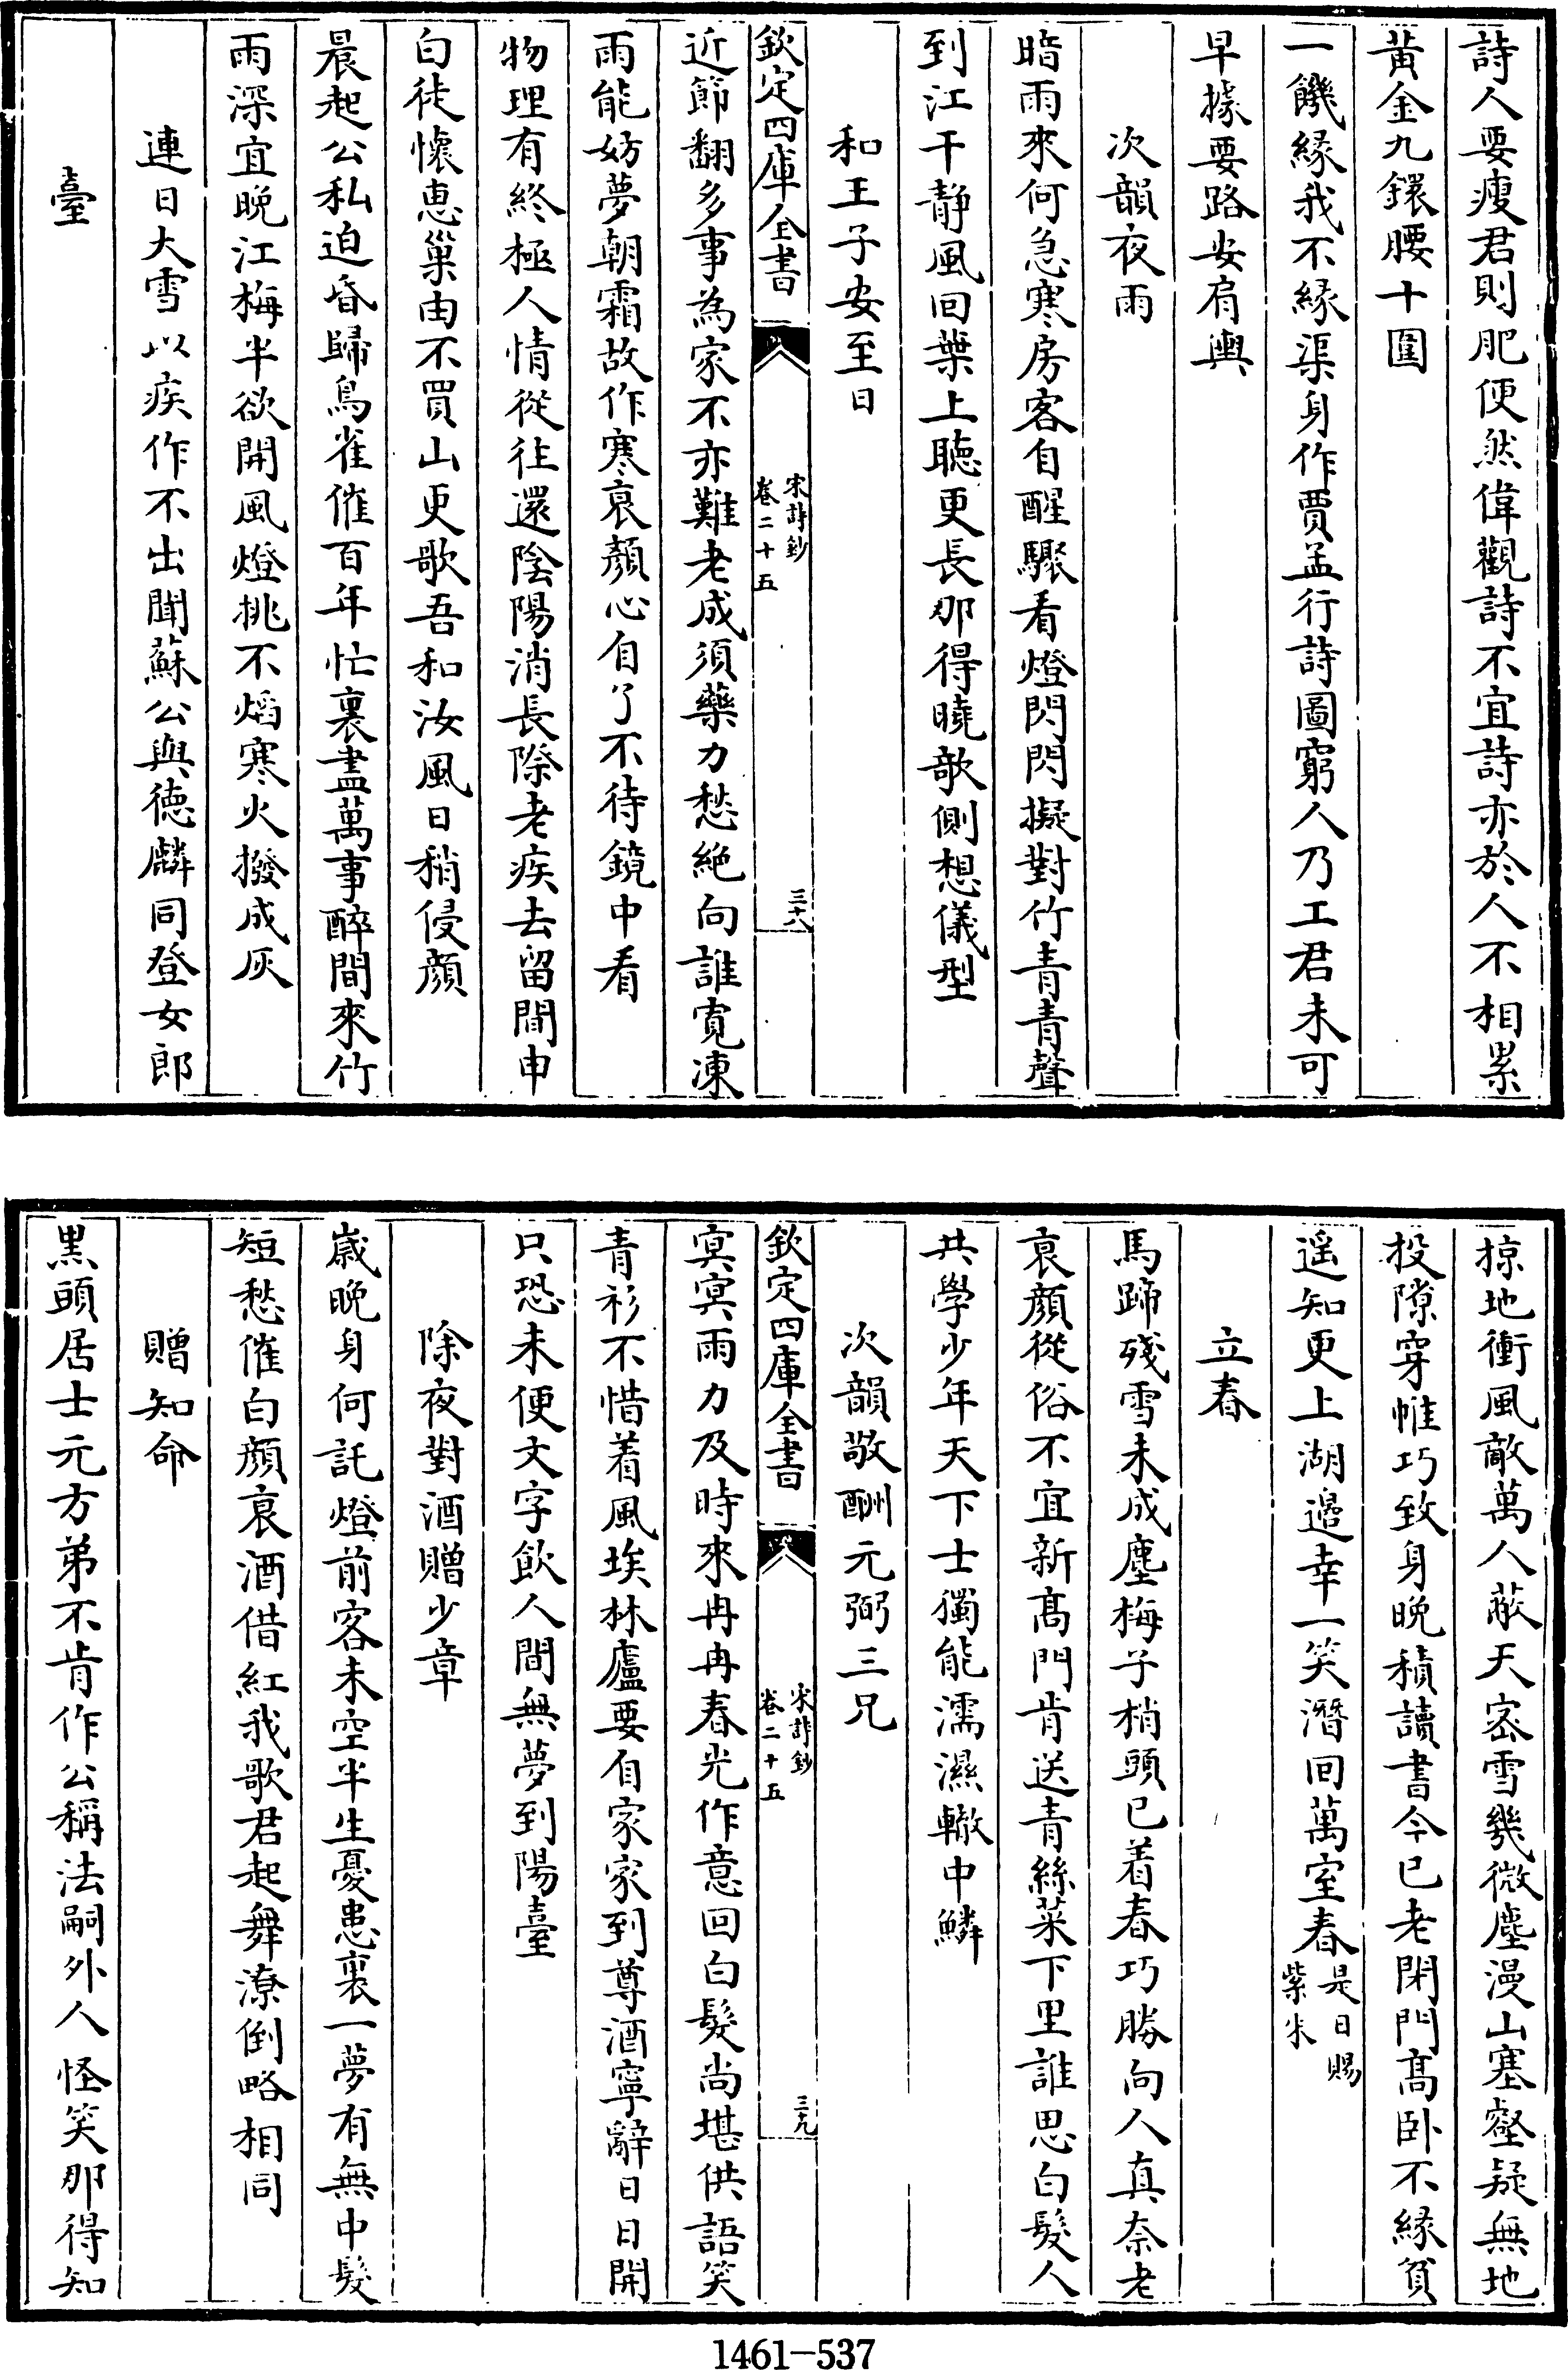 詩人要瘦君則肥便然偉觀詩不宜詩亦於人不相累
黃金九鐶腰十圍
一饑緣我不緣渠身作賈孟行詩圖窮人乃工君未可
早據要路安肩輿
次韻夜雨
暗雨來何急寒房客自醒驟看燈閃閃擬對竹青青聲
到江干靜風回葉上聽更長那得曉欹側想儀型
和王子安至日
欽定四庫全書
宋詩鈔
卷二十五
三十八
近節翻多事為家不亦難老成須藥力愁絶向誰寛凍
雨能妨夢朝霜故作寒衰顏心自了不待鏡中看
物理有終極人情從往還陰陽消長際老疾去留間申
白徒懷惠巢由不買山更歌吾和汝風日稍侵顏
晨起公私迫昏歸鳥雀催百年忙裏盡萬事醉間來竹
雨深宜晚江梅半欲開風燈挑不熖寒火撥成灰
連日大雪以疾作不出聞蘇公與德麟同登女郎
臺
掠地衝風敵萬人蔽天宻雪幾微塵漫山塞壑疑無地
投隙穿帷巧致身晚積讀書今已老閉門髙卧不緣貧
遥知更上湖邉幸一笑潛回萬室春是日賜
紫米
立春
馬蹄殘雪未成塵梅子梢頭已着春巧勝向人真奈老
衰顏從俗不宜新髙門肯送青絲菜下里誰思白髮人
共學少年天下士獨能濡濕轍中鱗
次韻敬酬元弼三兄
欽定四庫全書
宋詩鈔
卷二十五
三十九
冥冥雨力及時來冉冉春光作意回白髮尚堪供語笑
青衫不惜着風埃林廬要自家家到尊酒寧辭日日開
只恐未便文字飲人間無夢到陽臺
除夜對酒贈少章
歲晚身何託燈前客未空半生憂患裏一夢有無中髮
短愁催白顏衰酒借紅我歌君起舞潦倒略相同
贈知命
黒頭居士元方弟不肯作公稱法嗣外人怪笑那得知
1461-537